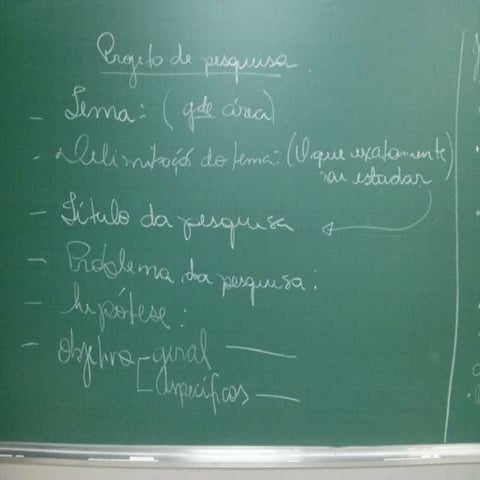 Projeto de pesquisa.
- Tema: (gde área)
- Delimitação do tema: (O que exatamente
vai estudar)
- Título da pesquisa
- Problema da pesquisa:
- hipótese:
- objetivo - geral
específicos